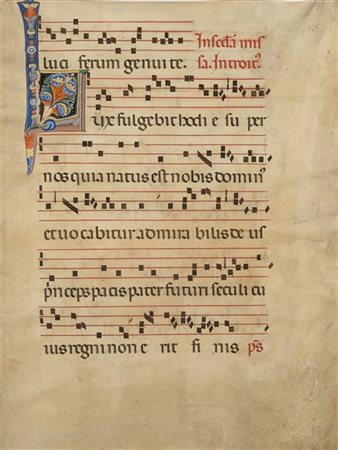 In scďa mis
luci ferum genuite. sa. Introitꝰ
Lux fulgebit hodi e su per
nos quia natus est nobis dominꝰ
et uo cabitur admira bilis de us
p̄nceps pacis pater futuri seculi cu
ius regni non e rit fi nis ps̄